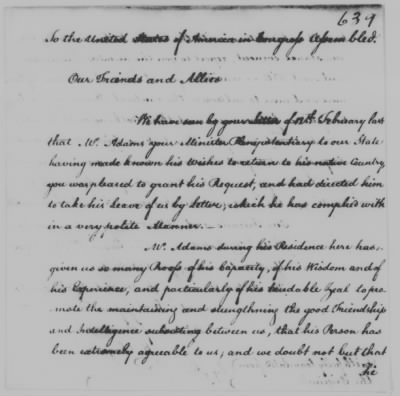 639
To the United States of America in Congress Assembled.
Our Friends and Allies
We have seen by your letter of 12th. February last
that Mr. Adams your Minister Plenipotentiary to our State
having made known his Wishes to return to his native Country
you was pleased to grant his Request, and had directed him
to take his Leave of us by Letter, which he has complied with
in a very polite Manner.
Mr. Adams during his Residence here has
given us so many Proofs of his Capacity, of his Wisdom and of
his Experience, and particularly of his laudable Zeal to pro
mote the maintaining and strengthning the good Friendship
and Intelligence subsisting between us, that his Person has
been extremely agreeable to us; and we doubt not but that
The